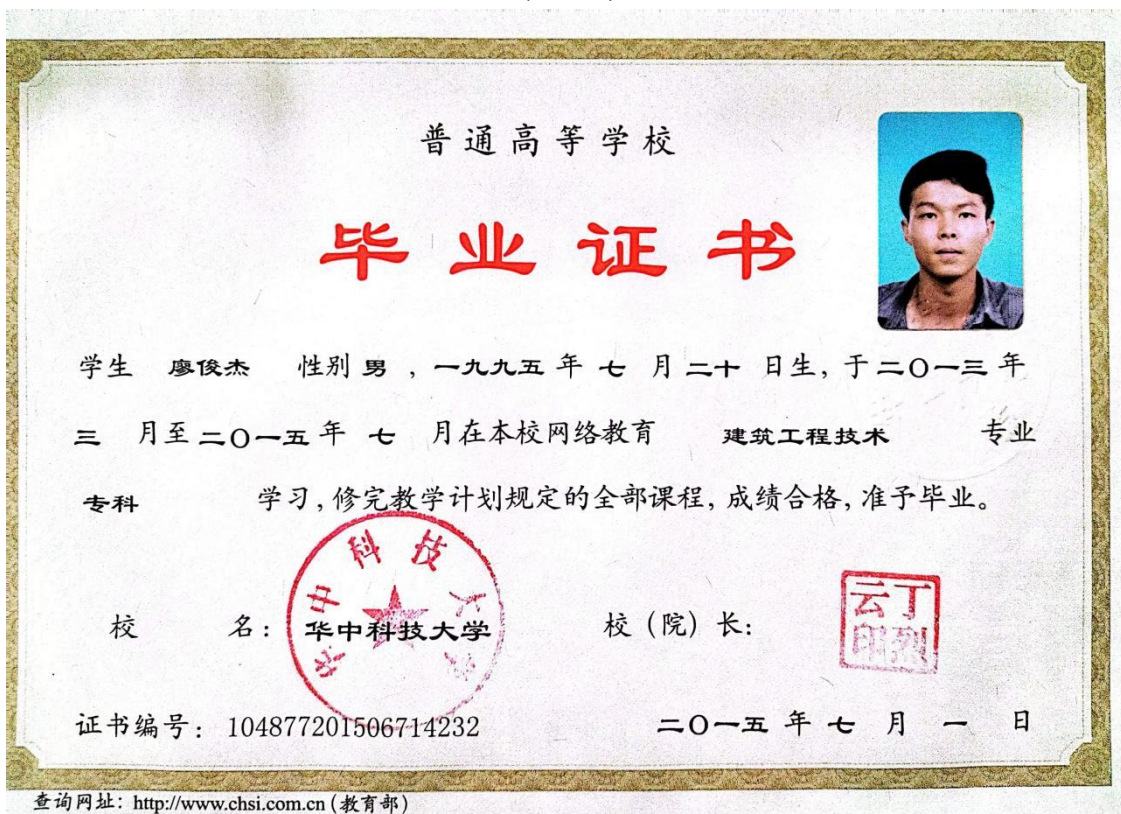 普通高等学校
毕业证书
学生 廖俊杰 性别 男 ，一九九五 年 七 月 二十 日生，于 二〇一三 年
三 月至 二〇一五 年 七 月在本校网络教育 建筑工程技术 专业
专科 学习，修完教学计划规定的全部课程，成绩合格，准予毕业。
华中科技大学
校 名：华中科技大学 校（院）长：
丁烈云印
证书编号：104877201506714232 二〇一五 年 七 月 一 日
查询网址：http://www.chsi.com.cn（教育部）